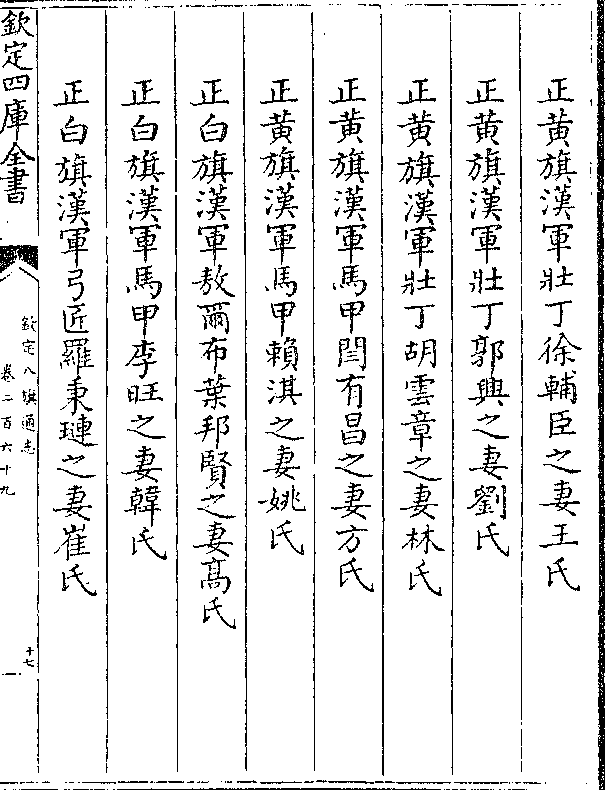 正黄旗漢軍壯丁徐輔臣之妻王氏
正黄旗漢軍壯丁郭興之妻劉氏
正黄旗漢軍壯丁胡雲章之妻林氏
正黄旗漢軍馬甲閆有昌之妻方氏
正黄旗漢軍馬甲賴淇之妻姚氏
正白旗漢軍敖爾布葉邦賢之妻髙氏
正白旗漢軍馬甲李旺之妻韓氏
正白旗漢軍弓匠羅秉璉之妻崔氏
欽定四庫全書
欽定八旗通志
卷二百六十九
十七